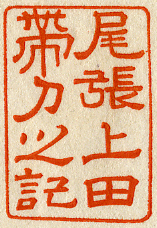 尾張上田
帶刀之記